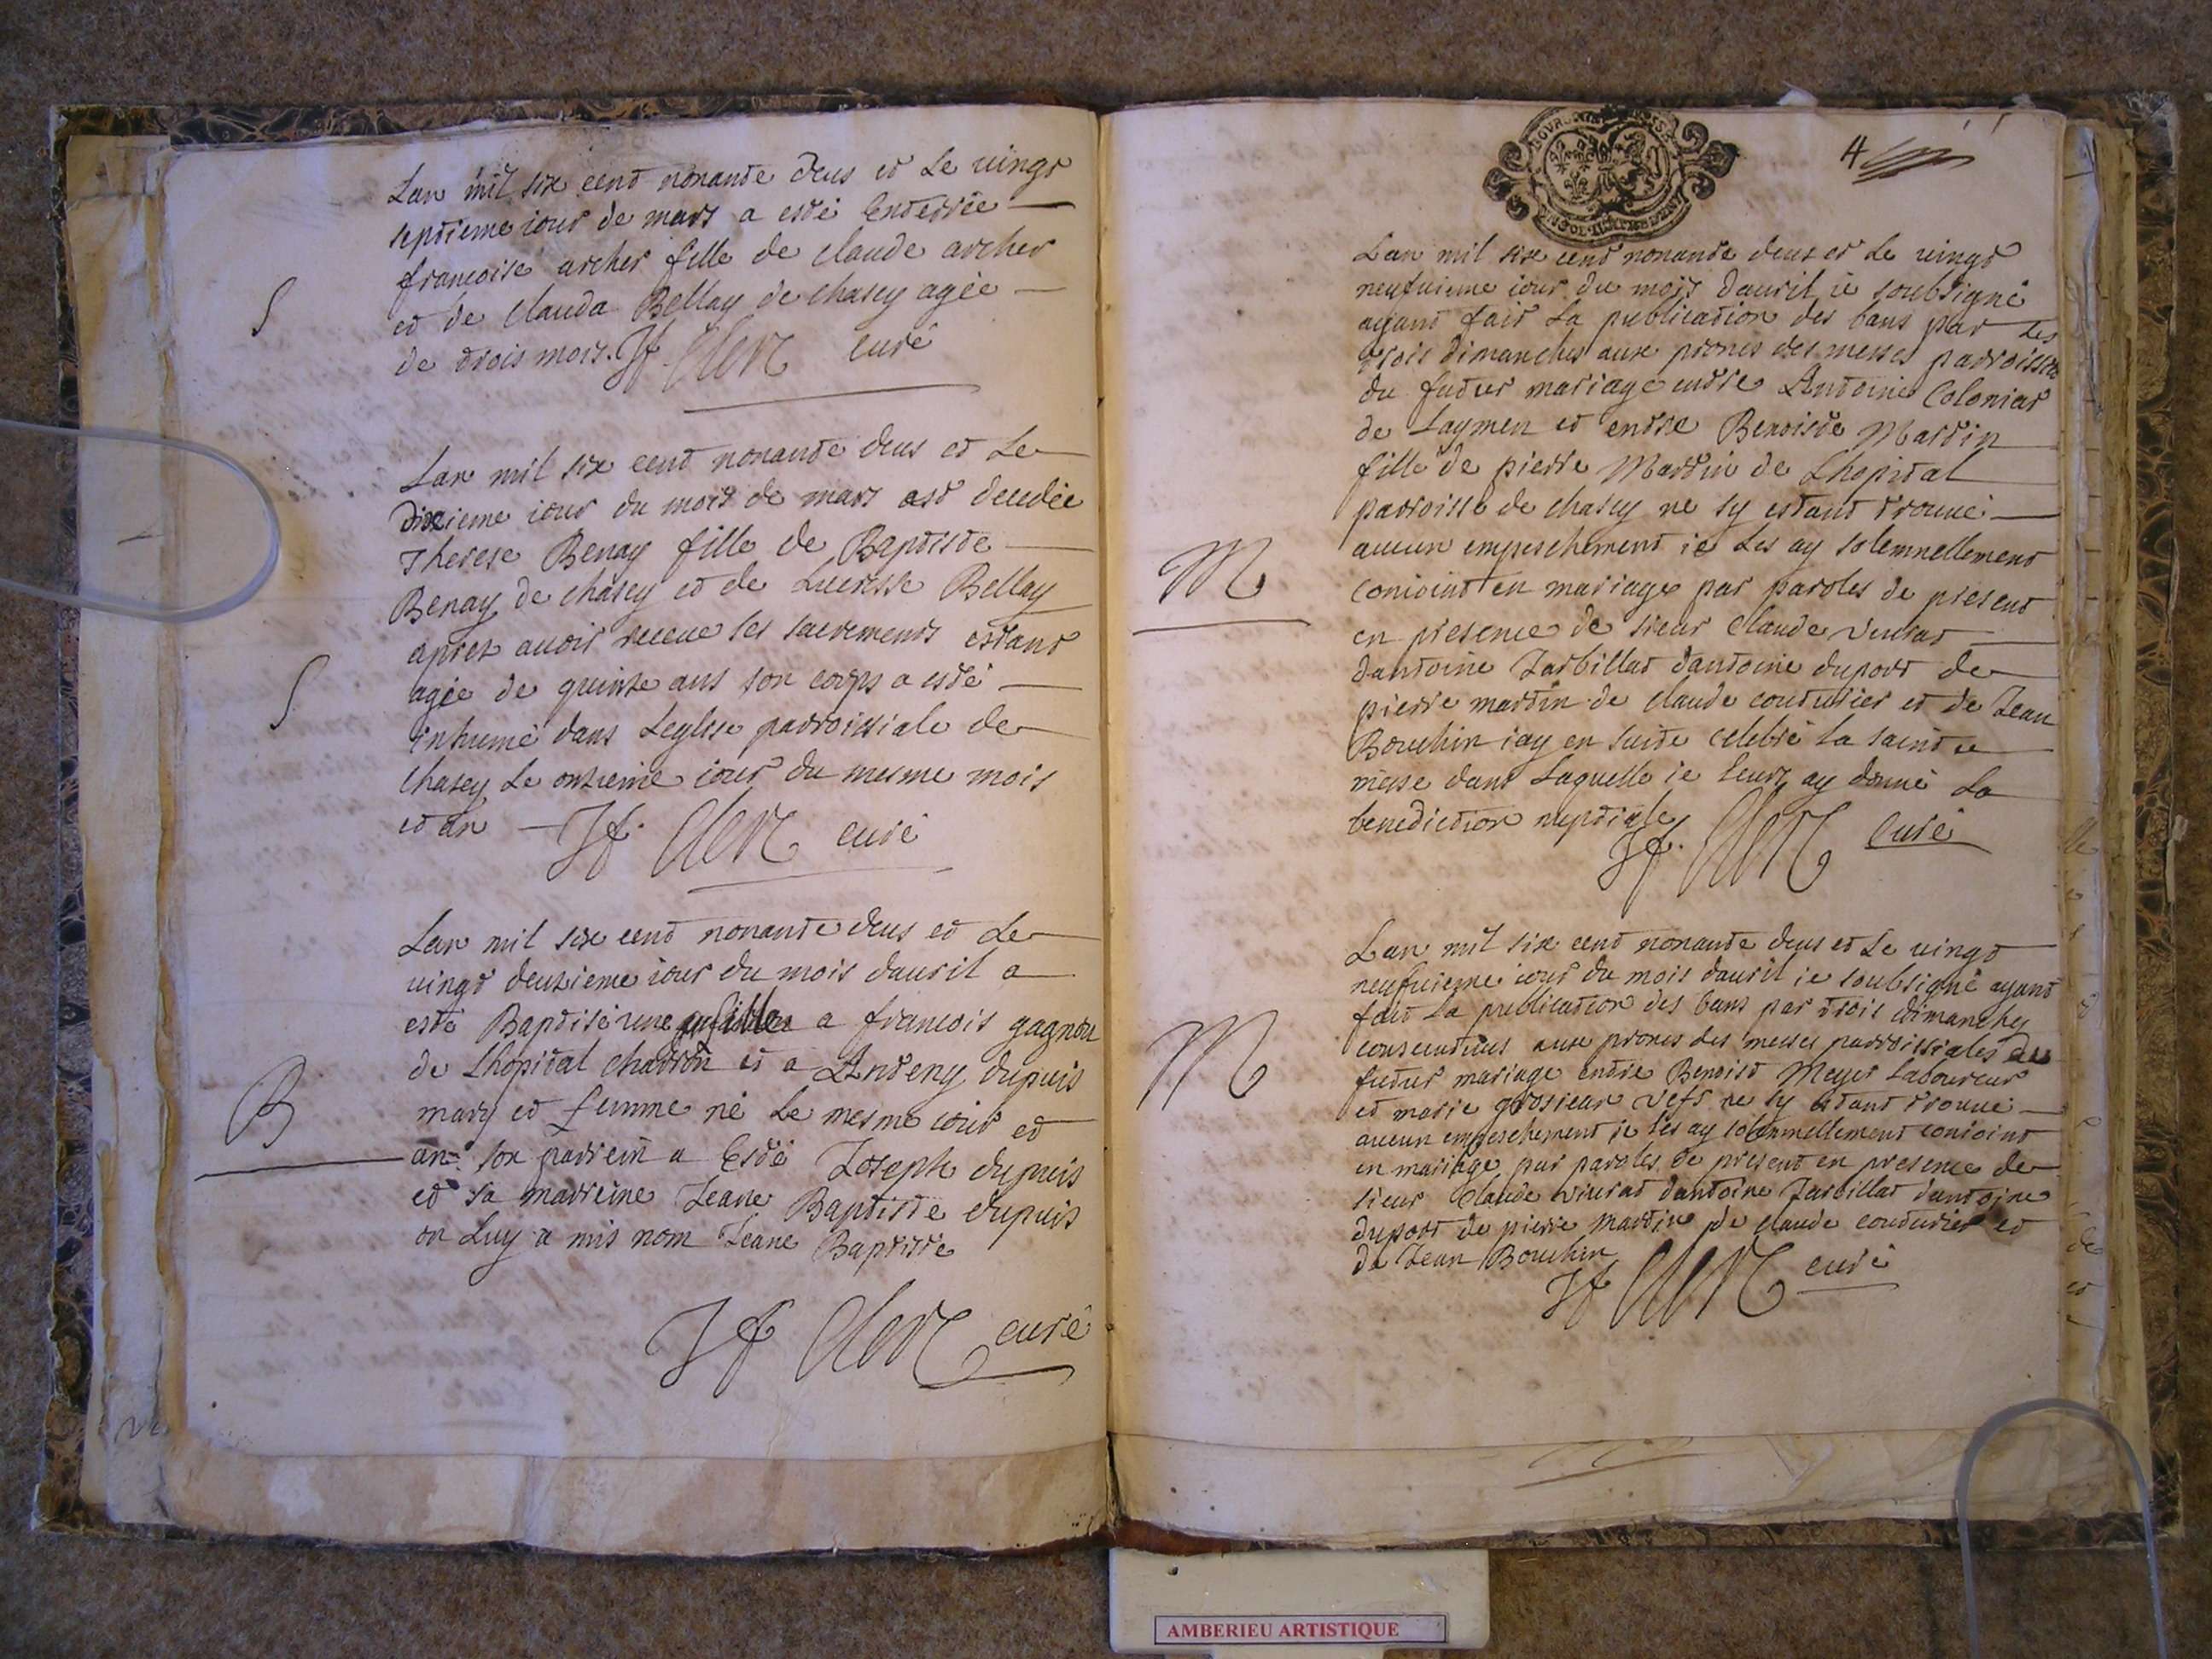 Lan mil six cent nonante deus et le vingt
septieme iour de mars a esté Enterrée
francoise archer fille de claude archer
et de clauda Bellay de chasey agée
S
de trois mois. Jf. Clerc curé
Lan mil six cent nonante deus et Le
dixieme iour du mois de mars est decedée
Therese Benay fille de Baptiste
Benay de chasey et de Lucresse Bellay
apres auoir receue les sacrements estant
S
agée de quinse ans son corps a esté
inhumé dans Leglise parroissiale de
chasey Le onzieme iour du mesme mois
et an Jf. Clerc curé
Lan mil six cent nonante deus et Le
vingt deuxieme iour du mois dauril a
esté Baptisé une fille a francois gagnon
de Lhopital charron et a Anteny dupuis
B
mary et femme né Le mesme iour et
an. son parrein a Esté Joseph dupuis
et sa marreine Jeane Baptiste dupuis
on Luy a mis nom Jeane Baptiste
Jf Clerc curé
4
Lan mil six cent nonante deus et Le vingt
neufuieme iour du mois dauril ie soubsigné
ayant fait La publication des bans par Les
trois dimanches aux prones des messes parroissiales
du futur mariage entre Antoine Coloniat
de Laymen et entre Benoiste Martin
fille de pierre Martin de Lhopital
parroisse de chasey ne sy estant trouué
aucun empeschement ie Les ay solemnellement
M
conioint en mariage par paroles de present
en presence de sieur claude
dantoine Jarbillat dantoine duport de
pierre martin de claude couturier et de Jean
Bouchin iay en suite celebré La sainte
messe dans Laquelle ie Leurs ay donné La
benediction nuptiale
Jf. Clerc Curé
Lan mil six cent nonante deus et Le vingt
neufuieme iour du mois dauril ie soubsigné ayant
fait La publication des bans par trois dimanches
consecutiues aux prones des messes parroissiales du
M
futur mariage entre Benoist Meyet Laboureur
et marie grosiean vefs ne sy estant trouué
aucun empeschement ie les ay solemnellement conioint
en mariage par paroles de present en presence de
sieur Claude dantoine Jarbillat dantoine
duport de pierre martin de claude couturier et
de Jean Bouchin
Jf Clerc curé
AMBERIEU ARTISTIQUE